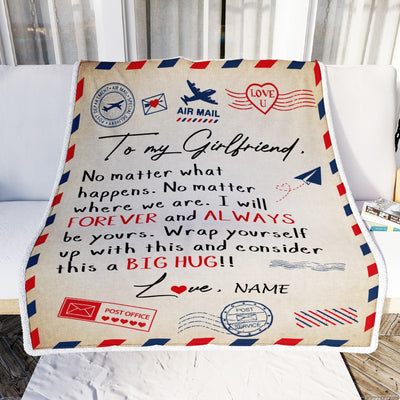 AIR MAIL
LOVE
U
To my Girlfriend,
No matter what
happens. No matter
where we are. I will
FOREVER and ALWAYS
be yours. Wrap yourself
up with this and consider
this a BIG HUG!!
Love, NAME
POST OFFICE
POST
SERVICE